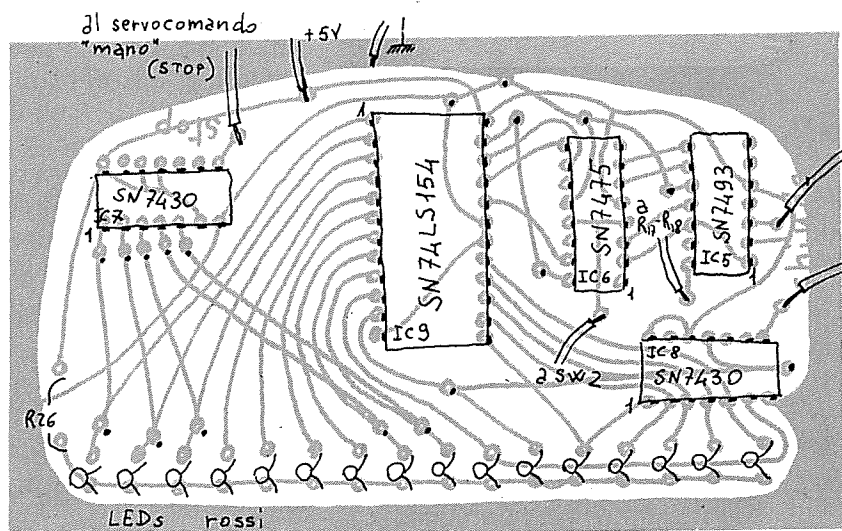 al servocomando
"mano"
(STOP)
+5V
stop
1
SN7430
IC7
1
SN74LS154
IC9
SN7475
IC6
1
a
R17-R18
SN7493
IC5
1
a SW2
IC8
SN7430
1
R26
LEDs rossi